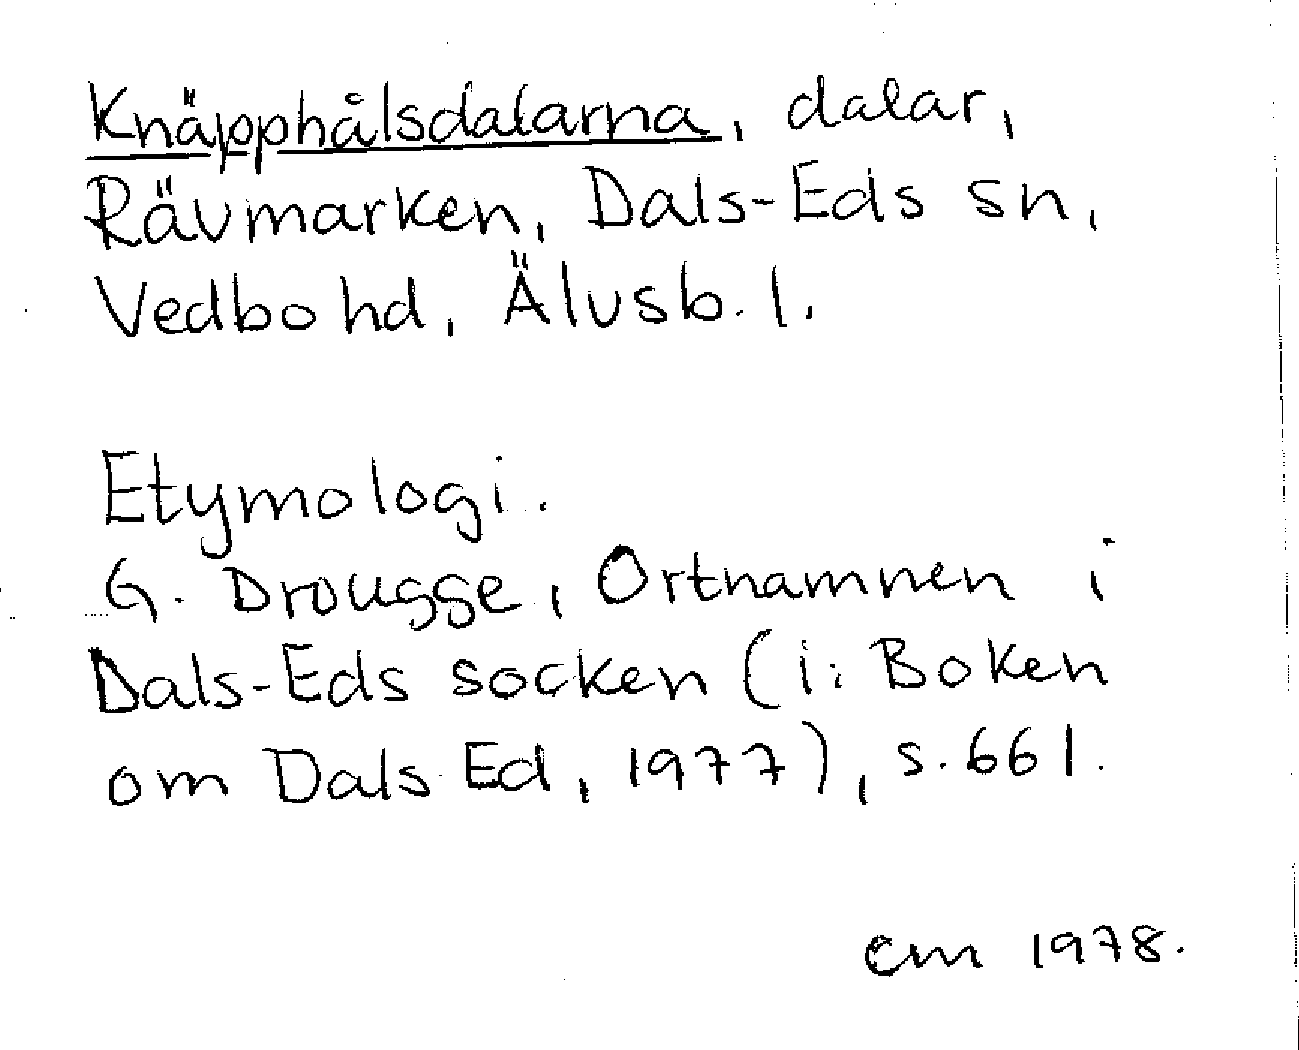 Knäpphålsdalarna, dalar,
Rävmarken, Dals-Eds sn,
Vedbo hd, Älvsb. l.
Etymologi.
G. Drougge, Ortnamnen i
Dals-Eds socken (i: Boken
om Dals Ed, 1977), s. 661.
em 1978.